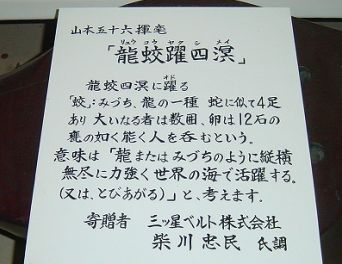 山本五十六揮毫
リュウ コウ ヤク シ メイ
「龍蛟躍四溟」
オド
龍蛟四溟に躍る
「蛟」:みづち、龍の一種 蛇に似て4足
あり 大いなる者は数囲、卵は12石の
甕の如く能く人を呑むという。
意味は「龍またはみづちのように縦横
無尽に力強く世界の海で活躍する。
(又は、とびあがる)」と、考えます。
寄贈者 三ッ星ベルト株式会社
柴川忠民 氏調